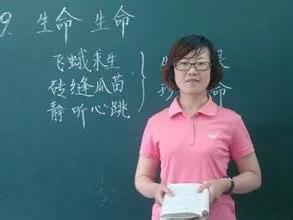 9. 生命 生命
飞蛾求生
砖缝瓜苗
静听心跳
命